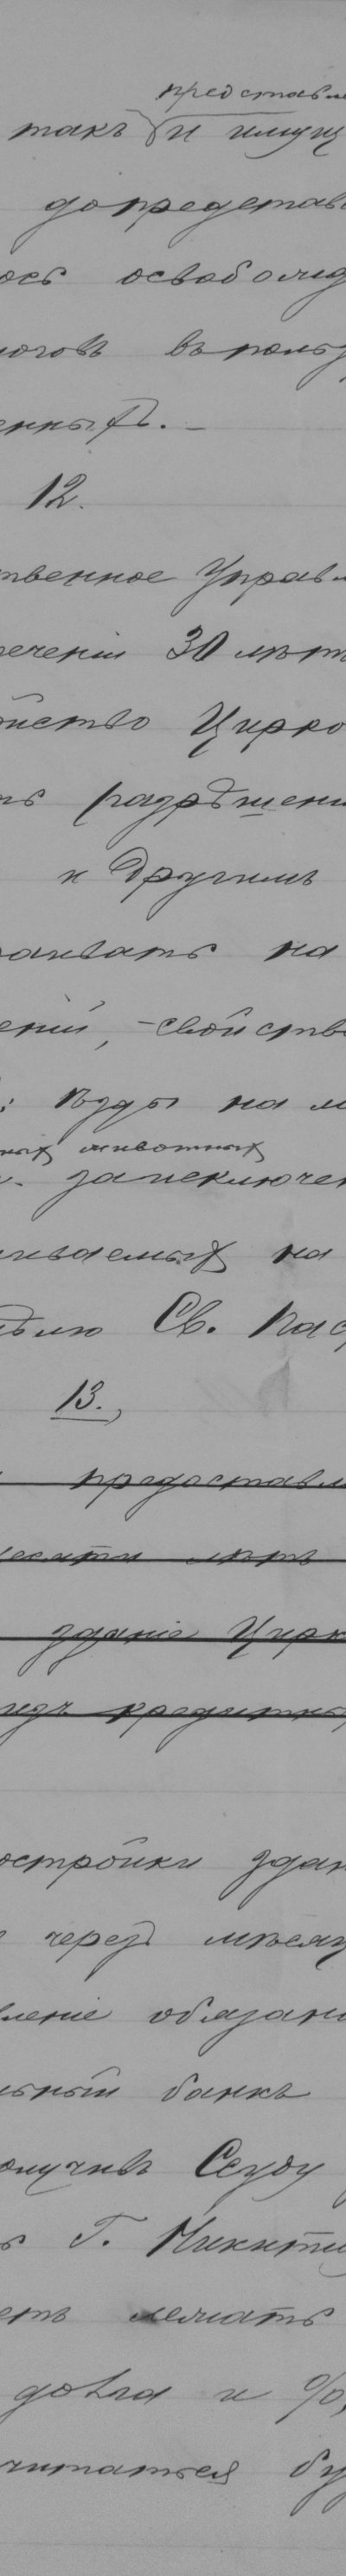 представл
такъ и имущ
допредстав
ось освобожд
логовъ въ польз
енныхъ.–
12.
твенное Управл
течении 30 лѣтъ
йство Цирко
ть разрѣшени
и другимъ
раивать на
ений, – свойств
: ѣзды на м
ныхъ животныхъ
заисключен
иваемыхъ на
дѣлю Св. Пас
13.,
предоставл
десяти лѣтъ
здание Цирк
кредитны
остройки здан
черезъ мѣсяц
вление обязан
льный банкъ
олучивъ Ссуду
ъ Г. Никити
етъ лежать
долга и %,
читаться бу